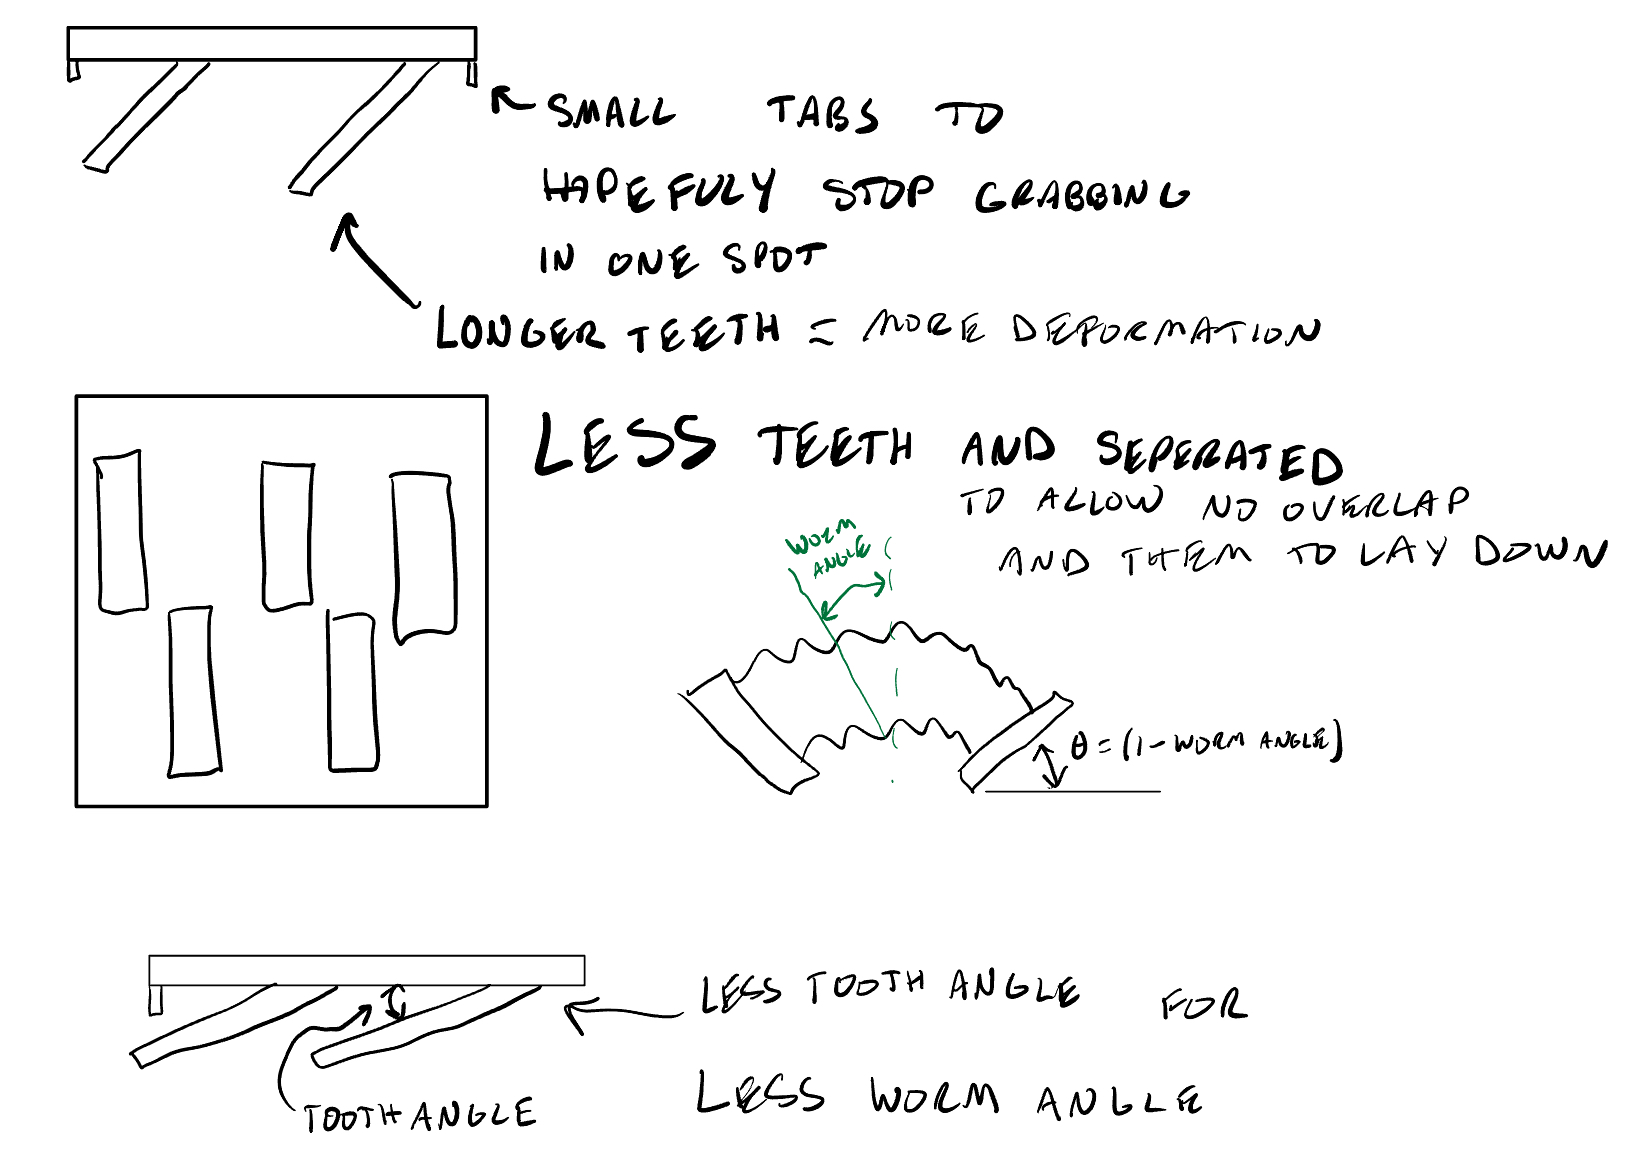 SMALL TABS TO
HAPEFULY STOP GRABBING
IN ONE SPOT
LONGER TEETH = MORE DEFORMATION
LESS TEETH AND SEPERATED
TO ALLOW NO OVERLAP
AND THEM TO LAY DOWN
WORM
ANGLE
θ = (1 - WORM ANGLE)
LESS TOOTH ANGLE FOR
LESS WORM ANGLE
TOOTH ANGLE